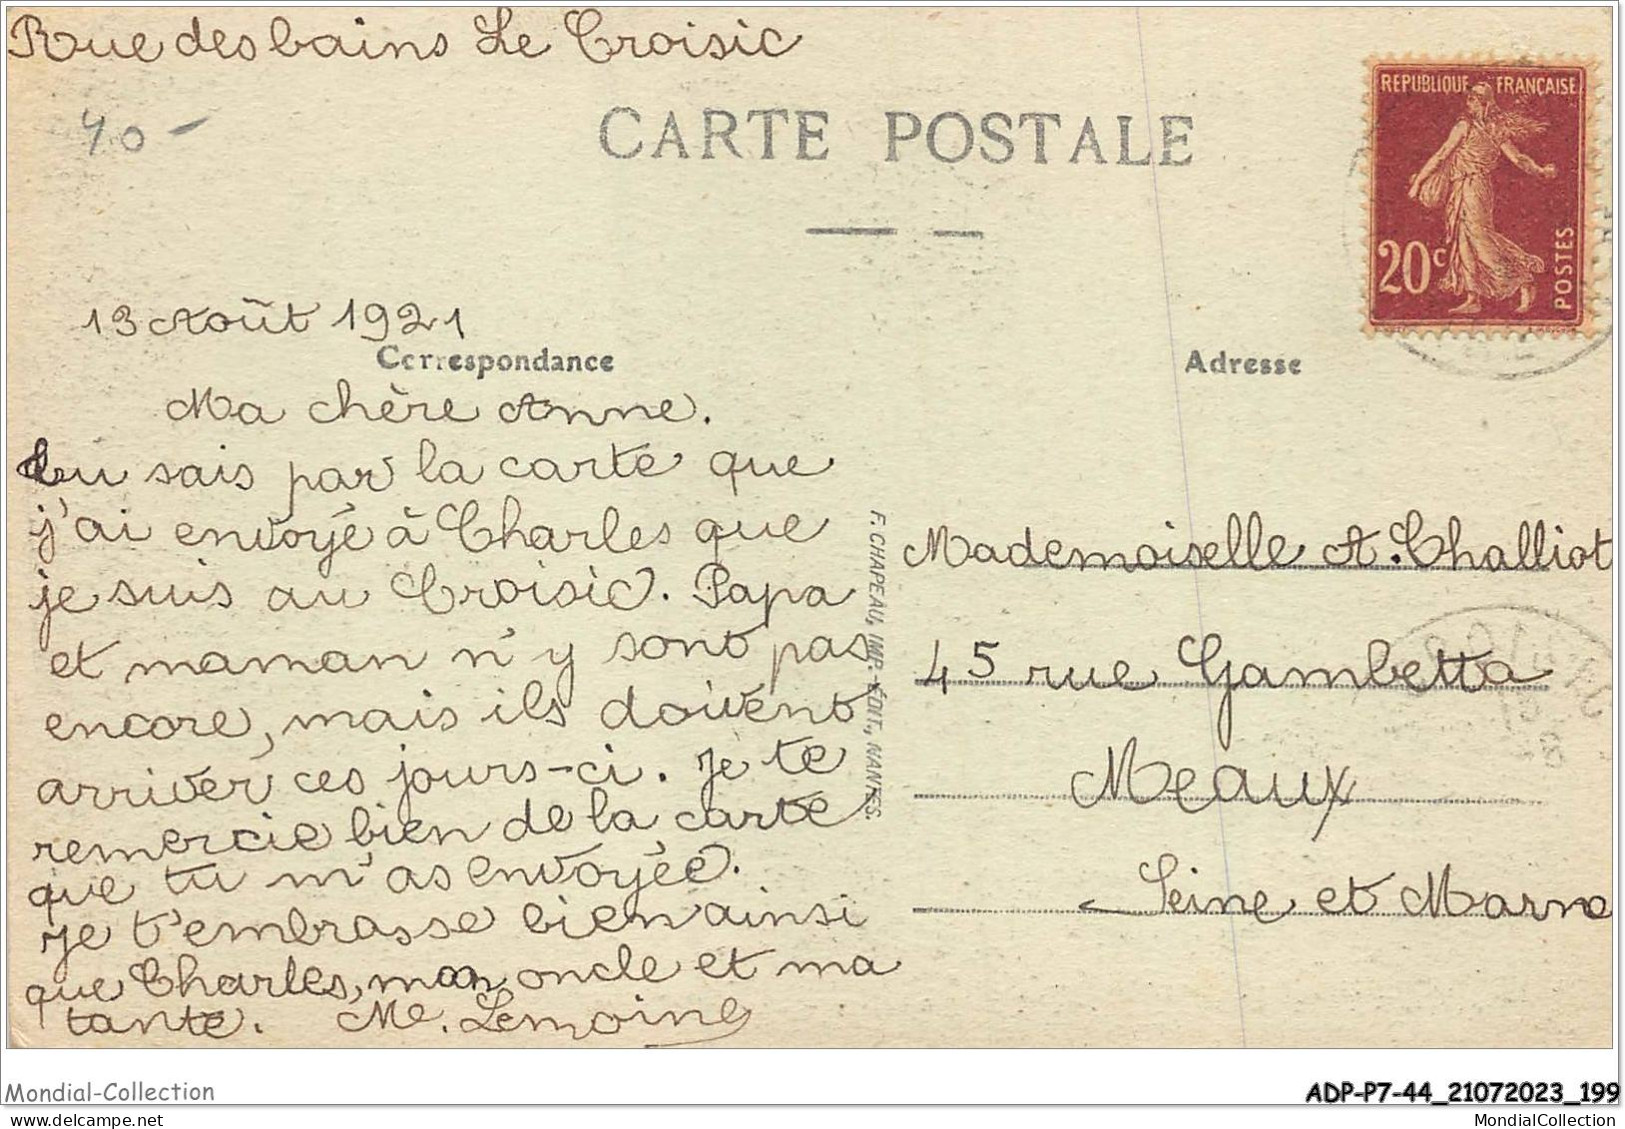 Rue des bains Le Croisic
40-
CARTE POSTALE
REPUBLIQUE FRANÇAISE
20c
POSTES
13 Août 1921
Correspondance
Ma chère Anne.
Tu sais par la carte que
j'ai envoyé à Charles que
je suis au Croisic. Papa
et maman n'y sont pas
encore, mais ils doivent
arriver ces jours-ci. Je te
remercie bien de la carte
que tu m'as envoyée.
Je t'embrasse bien ainsi
que Charles, mon oncle et ma
tante. Me. Lemoine
F. CHAPEAU, IMP.-ÉDIT., NANTES.
Adresse
Mademoiselle A. Challiot
45 rue Gambetta
Meaux
Seine et Marne
Mondial-Collection
ADP-P7-44_21072023_199
MondialCollection
MondialCollection